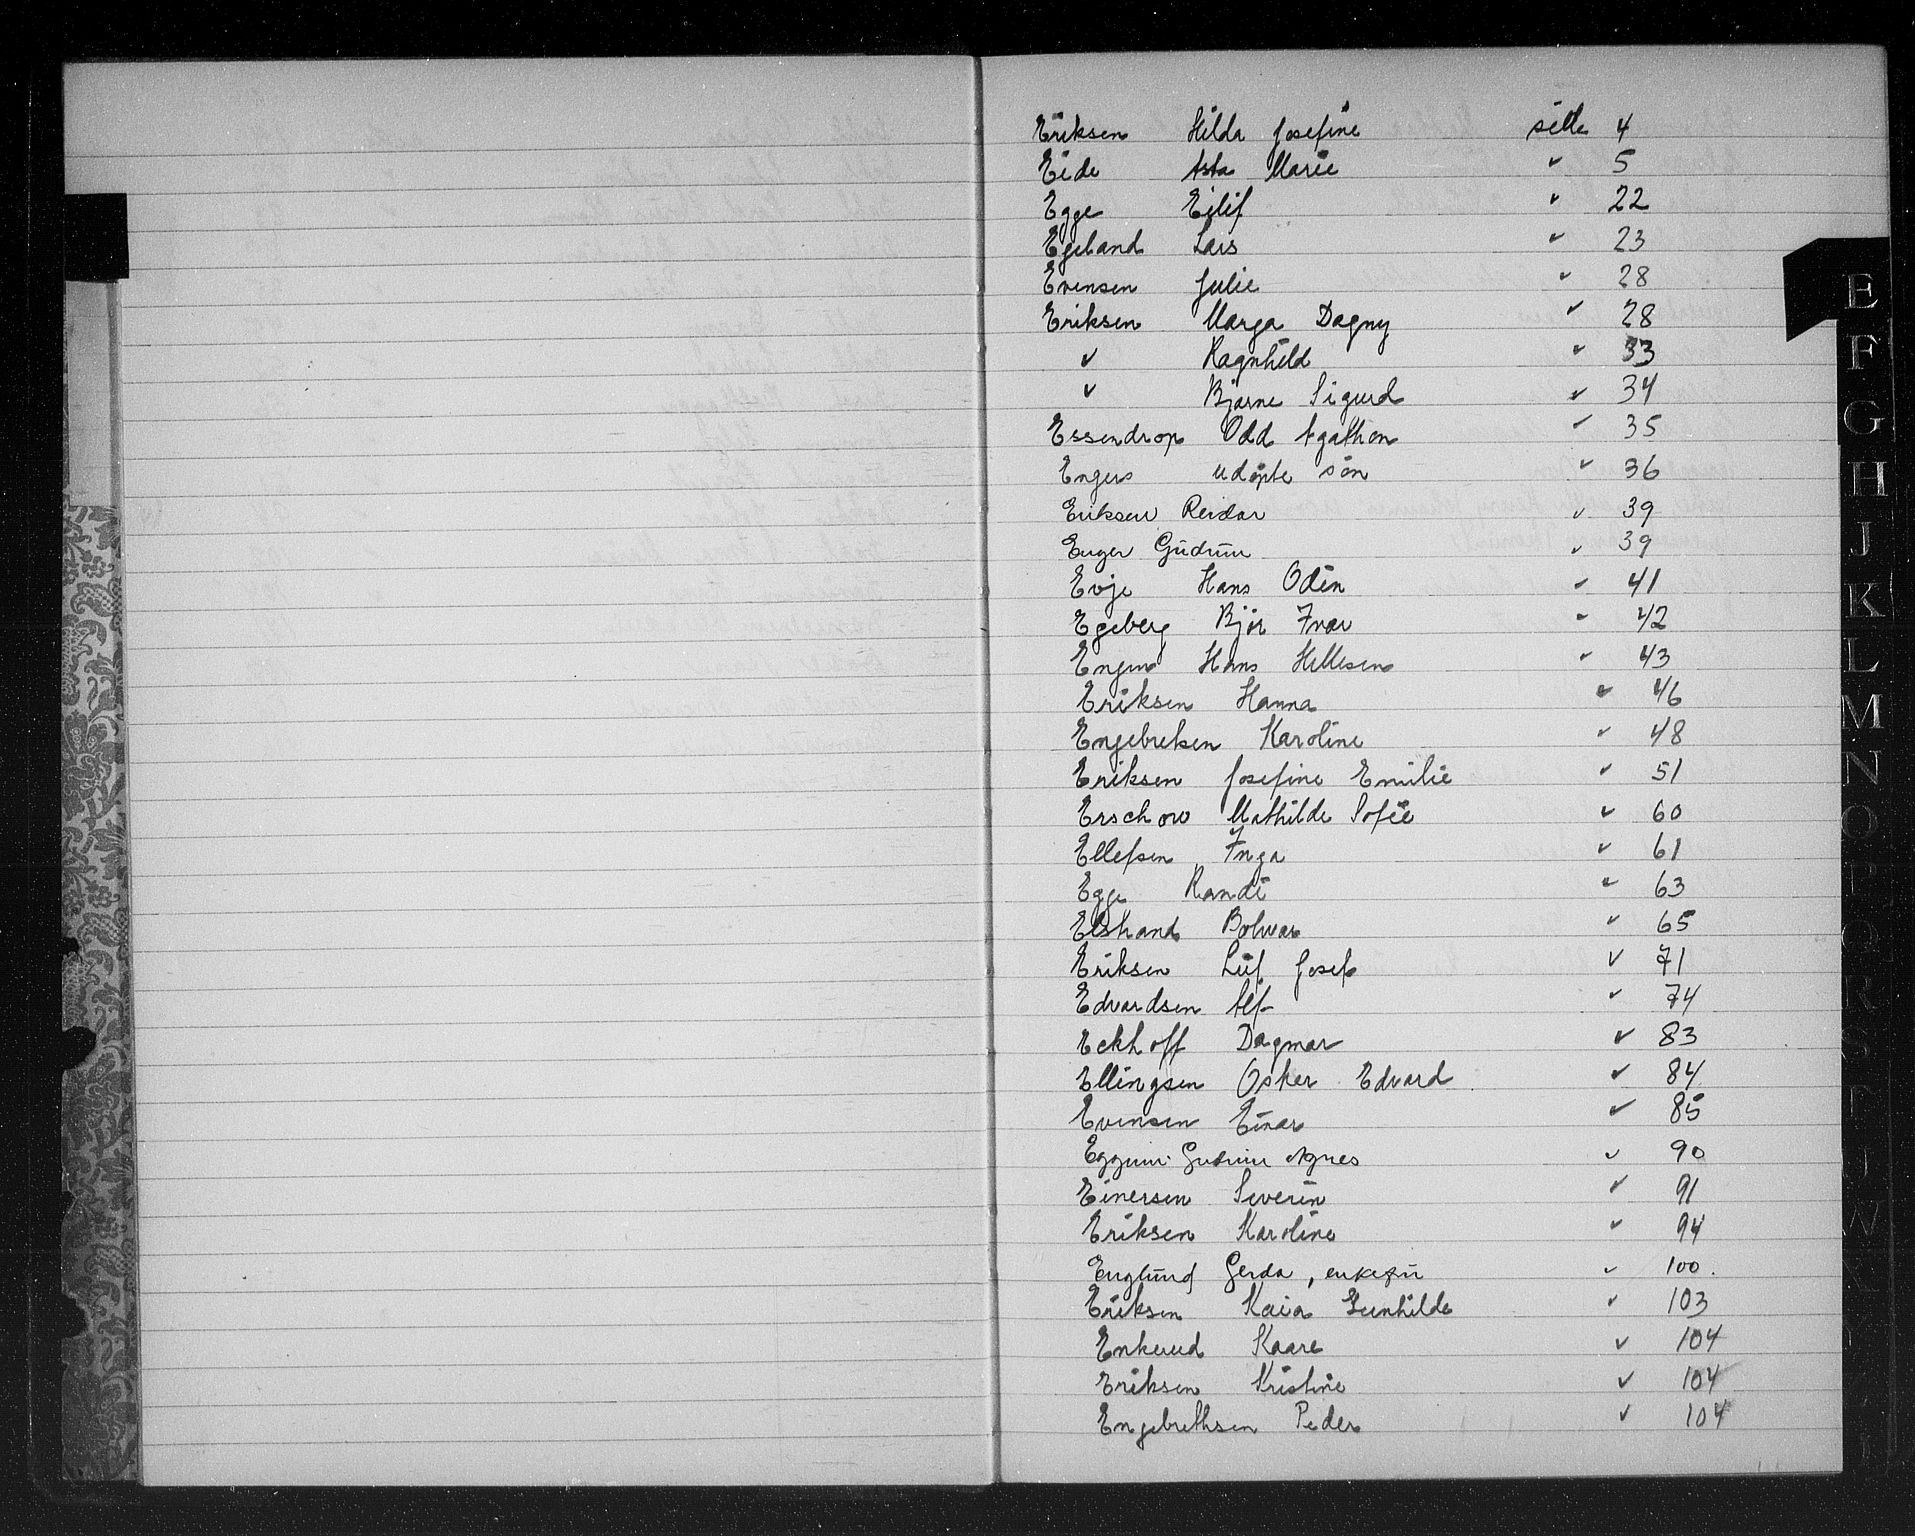 Eriksen Hilda Josefine side 4
Eide Asta Marie " 5
Egge Eilif " 22
Egeland Lars " 23
Evensen Julie " 28
Eriksen Marga Dagny " 28
" Ragnhild " 33
" Bjarne Sigurd " 34
Essendrop Odd Agathon " 35
Engers udøpte søn " 36
Eriksen Reidar " 39
Enger Gudrun " 39
Evje Hans Odin " 41
Egeberg Bjør Ivar " 42
Engen Hans Hellesen " 43
Eriksen Hanna " 46
Engebretsen Karoline " 48
Eriksen Josefine Emilie " 51
Erschow Mathilde Sofie " 60
Ellefsen Inga " 61
Egge Randi " 63
" 65
Eriksen Leif Josef " 71
Edvardsen Alf " 74
Eckhoff Dagmar " 83
Ellingsen Osker Edvard " 84
Evensen Einar " 85
Eggum Gudrun Agnes " 90
Einersen Severin " 91
Eriksen Karoline " 94
Englund Gerda, enkefru " 100.
Eriksen Kaia Gunhilde " 103
Kaare " 104
Eriksen Kristine " 104
Engebrethsen Peder " 104
E
F
G
H
J
K
L
M
N
O
P
Q
R
S